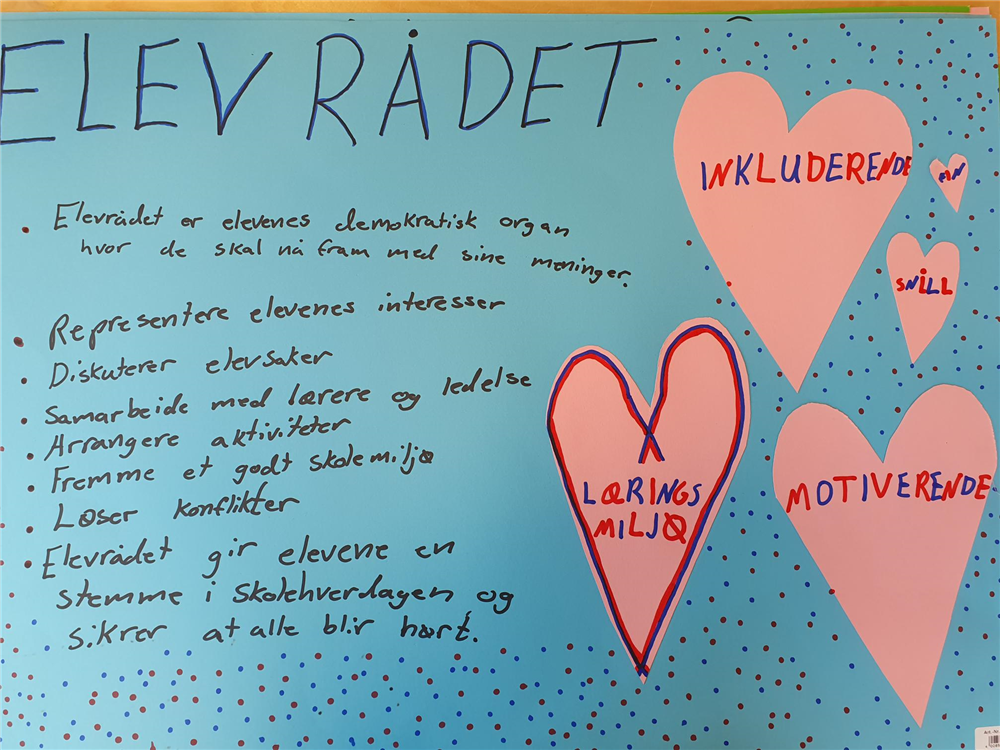 ELEV RÅDET
• Elevrådet er elevenes demokratisk organ
hvor de skal nå fram med sine meninger.
• Representere elevenes interesser
• Diskuterer elevsaker
• Samarbeide med lærere og ledelse
• Arrangere aktiviteter
• Fremme et godt skolemiljø
• Løser konflikter
• Elevrådet gir elevene en
stemme i skolehverdagen og
sikrer at alle blir hørt.
INKLUDERENDE
SNILL
LÆRINGS
MILJØ
MOTIVERENDE